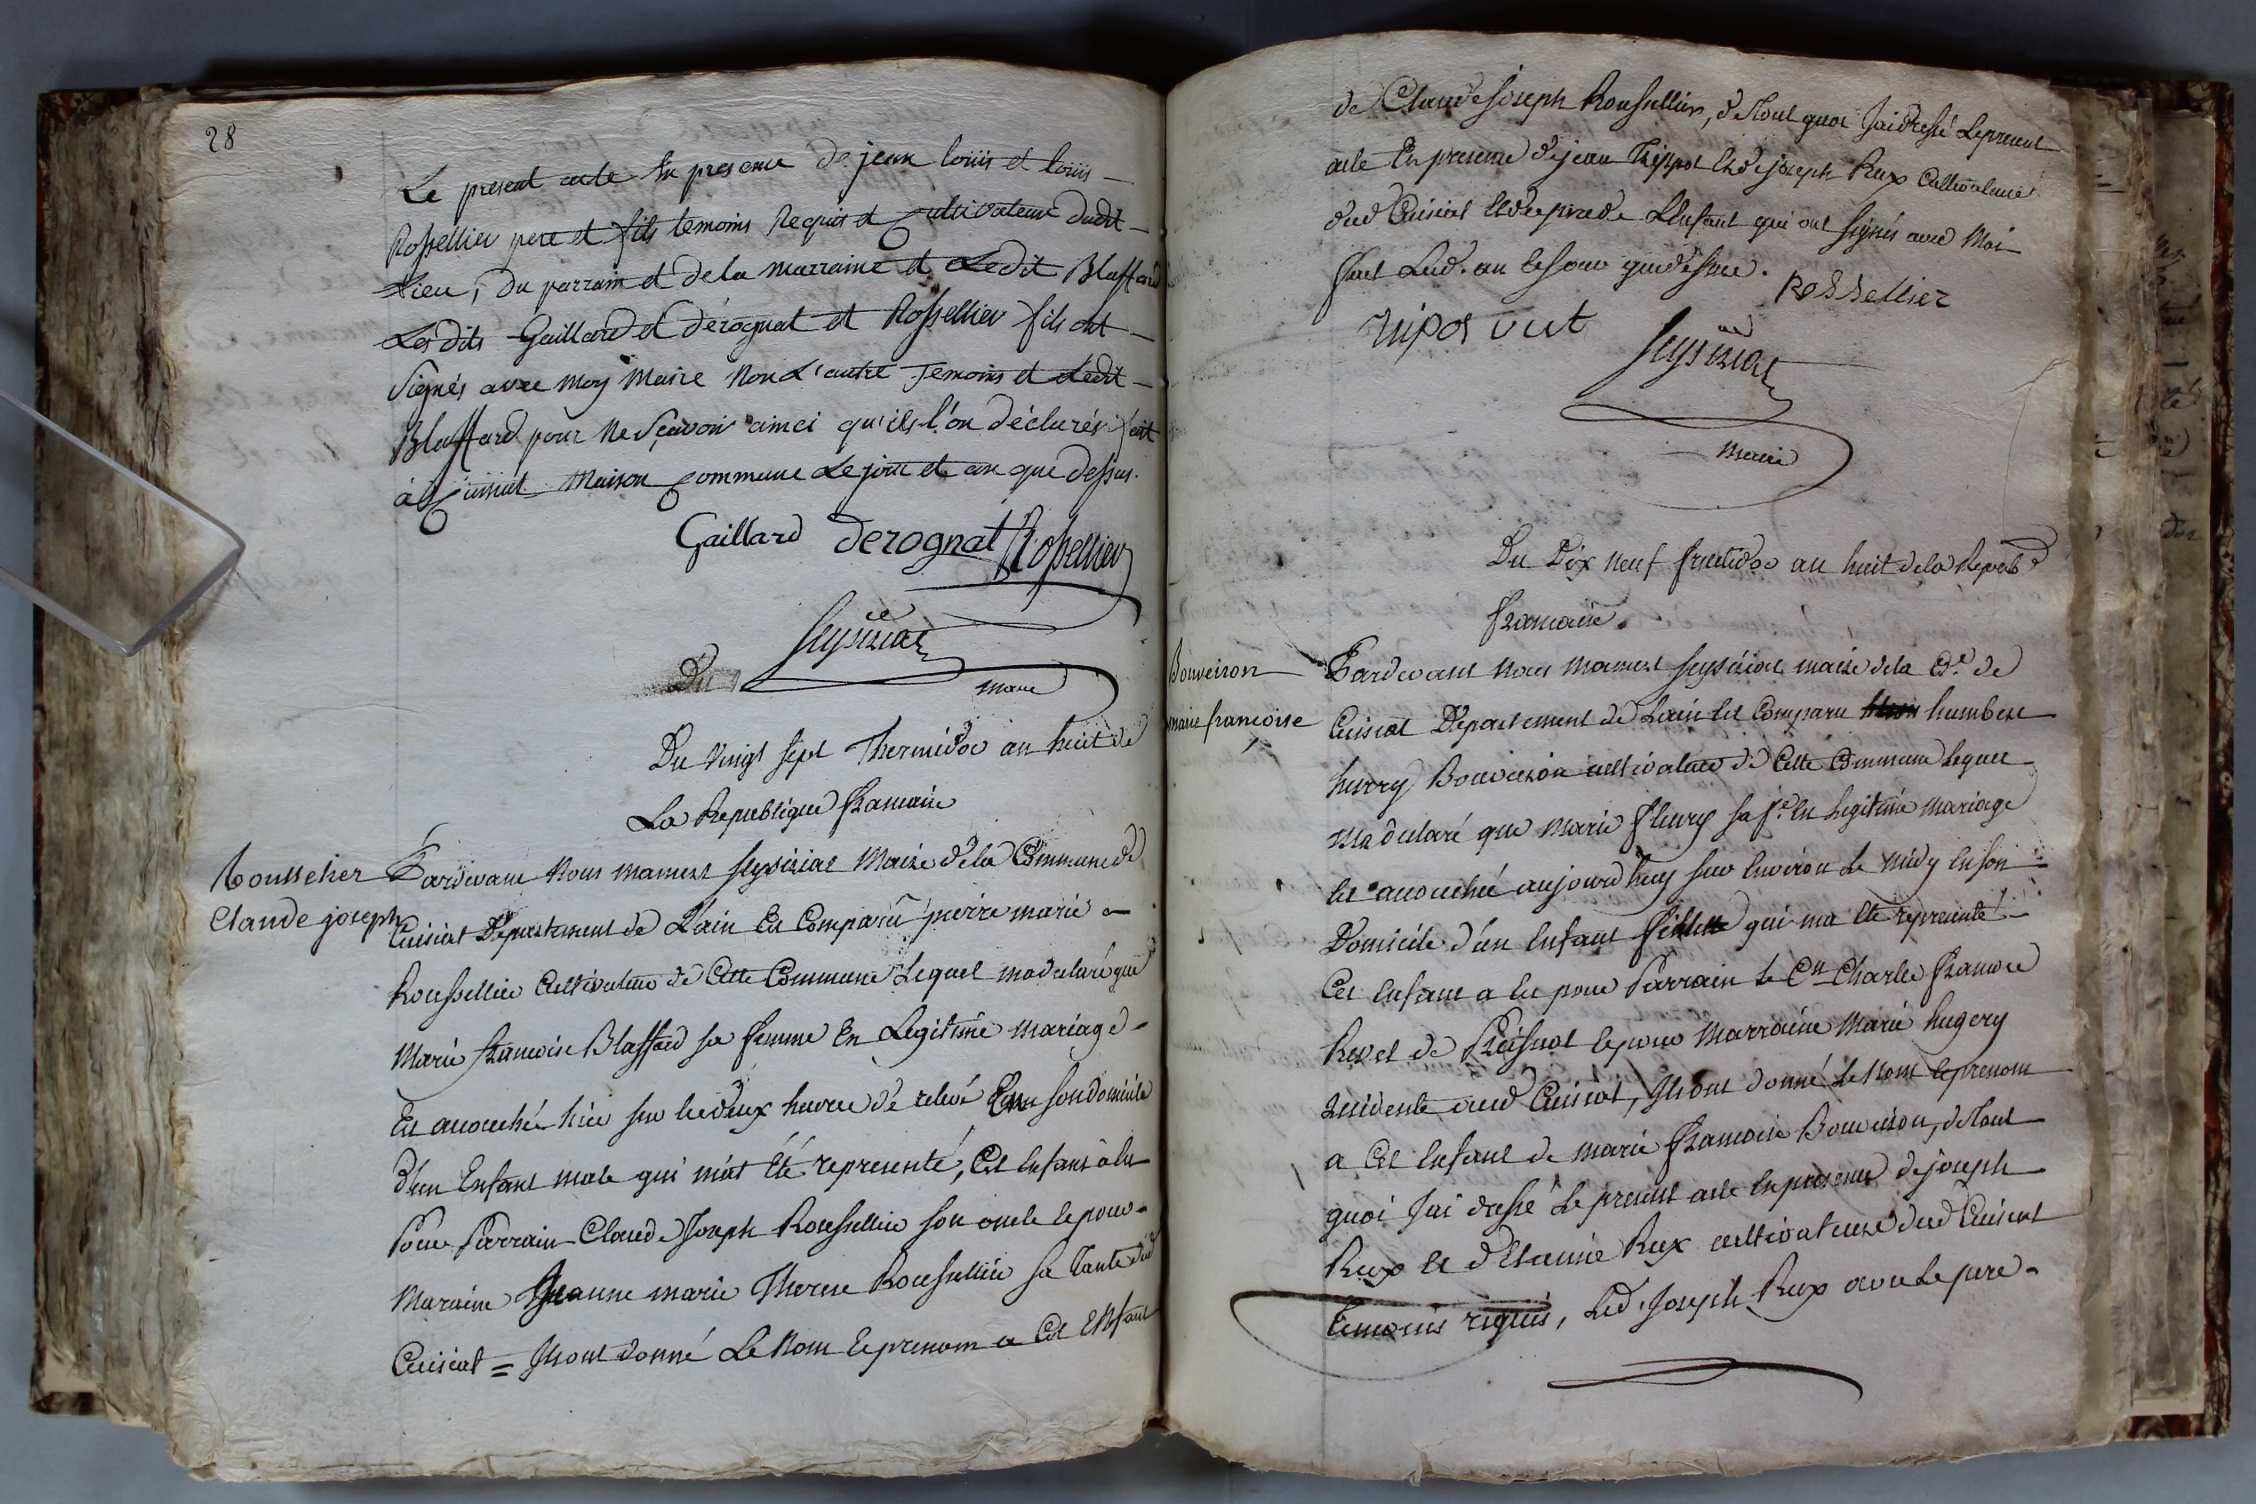 28
Le present acte En presence de jean loüis et loüis
Rossellier pere et fils temoins Requis et Cultivateur dudit
Lieu, du parrain et de la marraine et Ledit Blaffard
Les dits Gaillard et dérognat et Rossellier fils ont
Signés avec moy Maire Non L'autre Temoins et Ledit
Blaffard pour Ne Sçavoir ainci qu'ils l'on déclarés fait
à Cuisiat Maison Commune Le jour et an que dessus.
Gaillard derognat Rossellier
Seysiriat
maire
Du
Du vingt sept Thermidor an huit de
La Republique francaise
Rousselier
Claude joseph
Pardevant Nous mamert Seysiriat Maire de la Commune de
Cuisiat Departement de L'ain Est Comparu pierre marie
Roussellier Cultivateur de Cette Commune Lequel ma declaré que
Marie francoise Blaffard sa femme En Legitime mariage
Est accouchée hier sur les deux heures de relevé En son domicile
d'un Enfant male qui m'at Eté representé, Cet Enfant à Eu
Pour Parrain Claude Joseph Roussellier son oncle Et pour
Maraine Jeanne marie Therese Roussellier sa Tante dud
Cuisiat = Ils ont donné Le Nom Et prenom a Cet Enfant
de Claude Joseph Roussellier, de tout quoi J'ai dressé Le present
acte En presence de jean Trippoz Et de joseph Rux Cultivateurs
dud Cuisiat Et du pere de L'Enfant qui ont signés avec Moi
fait Led. an Et jour que dessus.
Rossellier
Seysiriat
maire
Du Dix neuf fructidor an huit de la Repub
francaise
Bouveiron
marie francoise
Pardevant Nous Mamert Seysiriat maire de la Cne de
Cuisiat Departement de Lain Est Comparu humbert
hurry Bouveiron cultivateur de Cette Commune Lequel
Ma declaré que marie fleury sa fe En Legitime mariage
Est accouchée aujourdhuy sur Environ Le midy En son
Domicile d'un Enfant fillette qui ma Eté representé
Cet Enfant a Eu pour Parrain Le Cn Charle francois
Revet de Et pour Marraine Marie hugery
residente aud Cuisiat, Ils ont donné Le Nom Et prenom
a Cet Enfant de marie francoise Bouveiron, de tout
quoi J'ai dressé Le present acte En presence de joseph
Rux Et d'Etienne Rux cultivateurs dud Cuisiat
temoins requis, Led. Joseph Rux avec Le pere